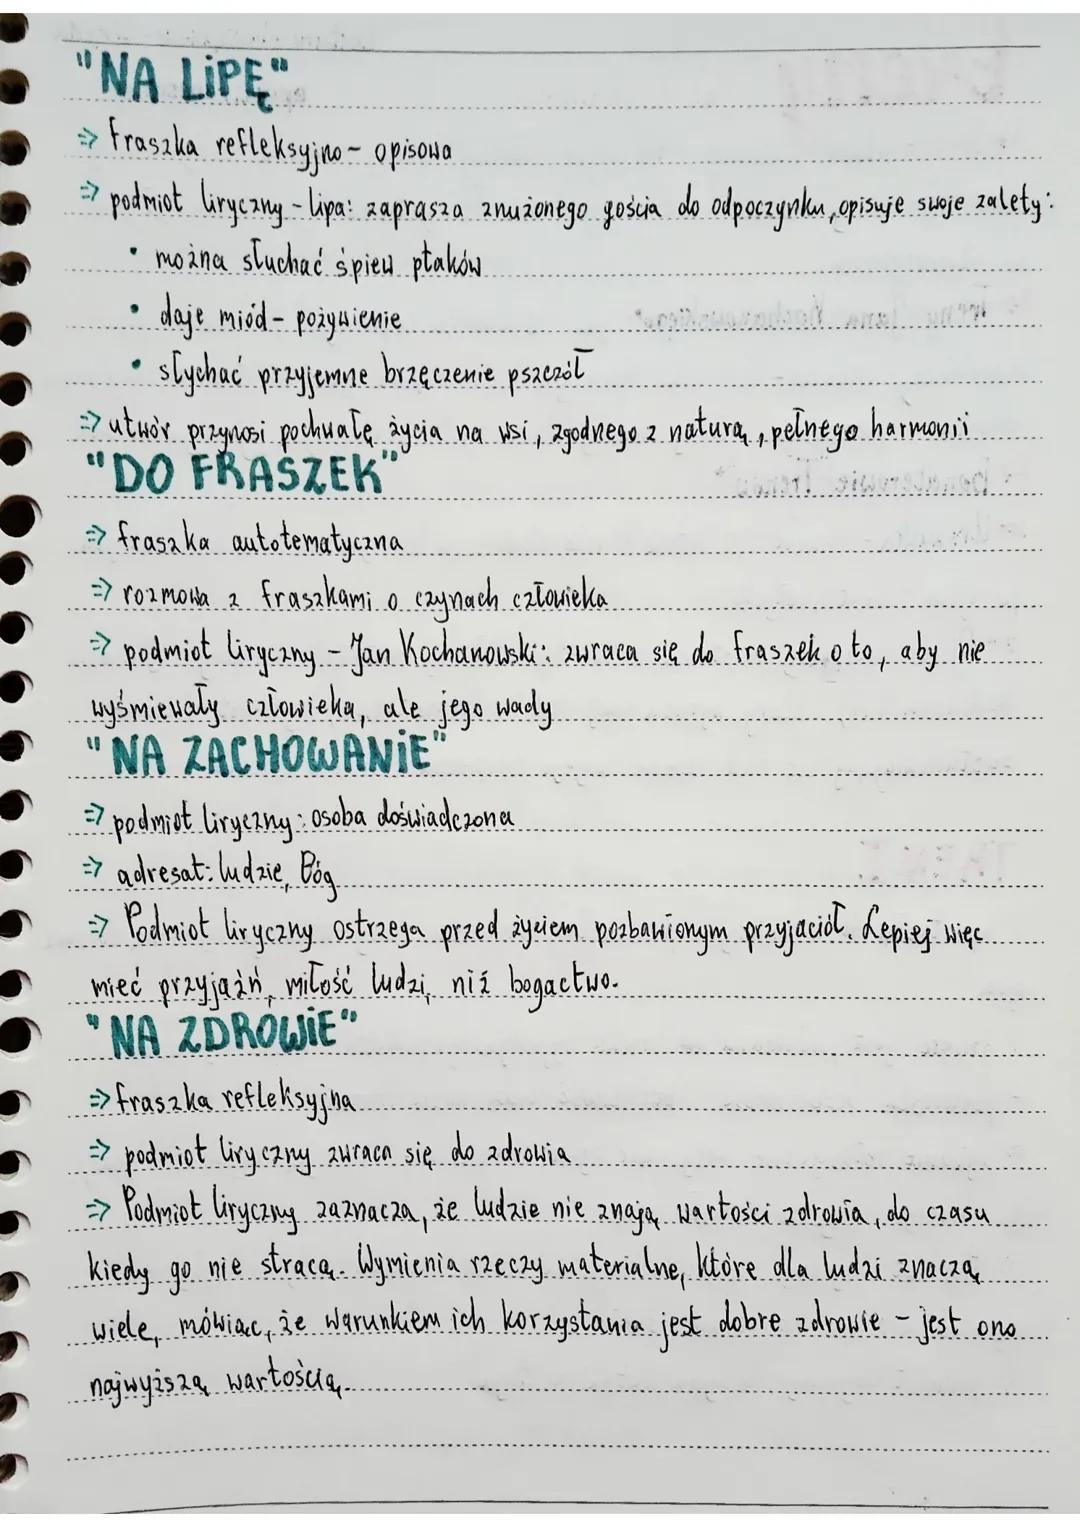 "NA LIPĘ"
⇒ fraszka refleksyjno - opisowa
⇒ podmiot liryczny - lipa: zaprasza znużonego gościa do odpoczynku, opisuje swoje zalety:
• można słuchać śpiew ptaków
• daje miód - pożywienie
• słychać przyjemne brzęczenie pszczół
⇒ utwór przynosi pochwałę życia na wsi, zgodnego z naturą, pełnego harmonii
"DO FRASZEK"
⇒ fraszka autotematyczna
⇒ rozmowa z fraszkami o czynach człowieka
⇒ podmiot liryczny - Jan Kochanowski: zwraca się do fraszek o to, aby nie
wyśmiewały człowieka, ale jego wady
"NA ZACHOWANIE"
⇒ podmiot liryczny: osoba doświadczona
⇒ adresat: ludzie, Bóg
⇒ Podmiot liryczny ostrzega przed życiem pozbawionym przyjaciół. Lepiej więc
mieć przyjaźń, miłość ludzi, niż bogactwo.
"NA ZDROWIE"
⇒ fraszka refleksyjna
⇒ podmiot liryczny zwraca się do zdrowia
⇒ Podmiot liryczny zaznacza, że ludzie nie znają wartości zdrowia, do czasu
kiedy go nie stracą. Wymienia rzeczy materialne, które dla ludzi znaczą
wiele, mówiąc, że warunkiem ich korzystania jest dobre zdrowie - jest ono
najwyższą wartością.